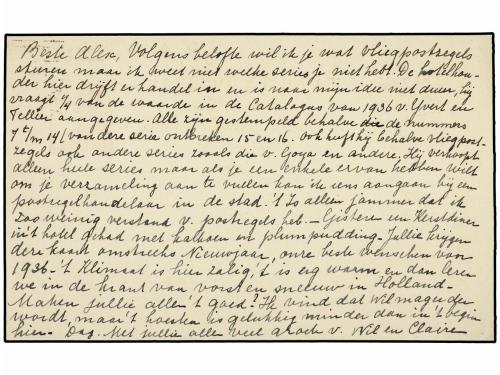 Beste Alex, Volgens belofte wil ik je wat vliegpostzegels
sturen maar ik weet niet welke series je niet hebt. De hotelhou-
der hier drijft er handel in en is naar mijn idee niet duur, hij
vraagt 1/4 van de waarde in de Catalogus van 1936 v. Yvert en
Tellier aangegeven. Alle zijn gestempeld behalve die de nummers
7 t/m 14 (van deze serie ontbreken 15 en 16. Ook heeft hij behalve vliegpost-
zegels ook andere series zooals die v. Goya en andere. Hij verkoopt
alleen heele series maar als je een enkele ervan hebben wilt
om je verzameling aan te vullen kan ik eens aangaan bij een
postzegelhandelaar in de stad. 't Is alleen jammer dat ik
zoo weinig verstand v. postzegels heb. - Gisteren een Kerstdiner
in 't hotel gehad met kalkoen en plumpudding. Jullie krijgen
deze kaart omstreeks Nieuwjaar, onze beste wenschen voor
1936. - 't Klimaat is hier zalig, 't is erg warm en dan lezen
we in de krant van vorst en sneeuw in Holland. -
Maken jullie allen 't goed? Ik vind dat Wil magerder
wordt, maar 't hoesten is gelukkig minder dan in 't begin
hier. - Dag. Met jullie allen veel groeten v. Wil en Claire